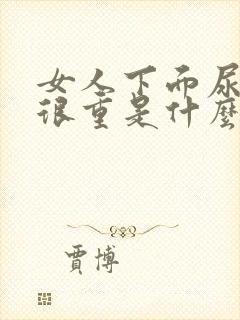 女人下而尿
很重是什麼
賈博